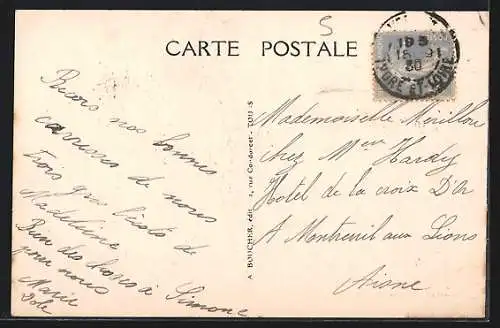 5
CARTE POSTALE
19 5
15 - 91
30
INDRE ET LOIRE
Recois nos bonnes
caresses de nous
trois gros bécots de
Madeleine
Bien des choses à Simone
pour nous
Marie
A BOUCHER, édit , rue Condorcet - TOURS
Mademoiselle Mérillon
chez Mme Hardy
Hotel de la croix D'Or
A Montreuil aux Lions
Aisne